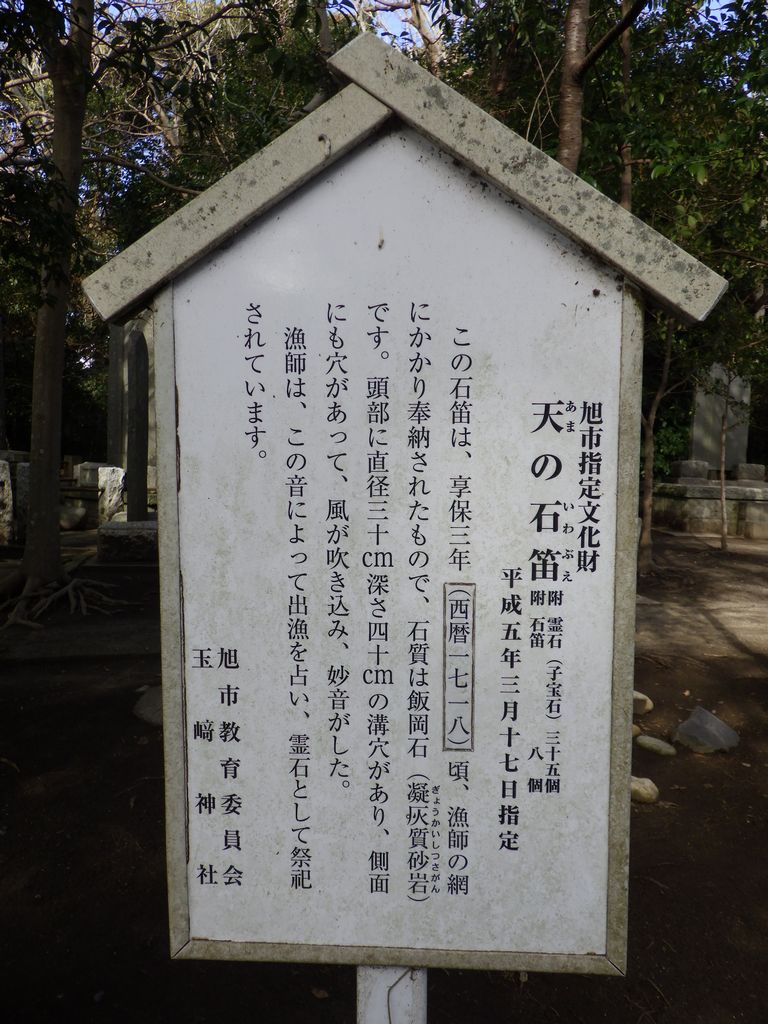 旭市指定文化財
天の石笛 附 霊石(子宝石)三十五個
附 石笛 八個
あま いわぶえ
平成五年三月十七日指定
この石笛は、享保三年(西暦一七一八)頃、漁師の網
にかかり奉納されたもので、石質は飯岡石(凝灰質砂岩)
ぎょうかいしつさがん
です。頭部に直径三十cm深さ四十cmの溝穴があり、側面
にも穴があって、風が吹き込み、妙音がした。
漁師は、この音によって出漁を占い、霊石として祭祀
されています。
旭市教育委員会
玉﨑神社